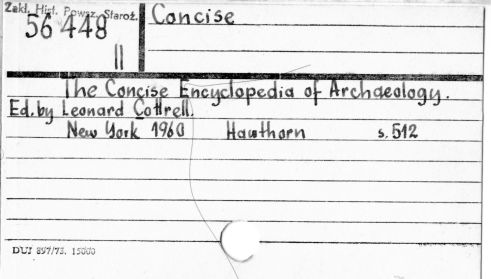 Zakł. Hist. Powsz. Staroż.
56 448
II
Concise
The Concise Encyclopedia of Archaeology.
Ed. by Leonard Cottrell.
New York 1960 Hawthorn s. 512
DUJ 897/75. 15000